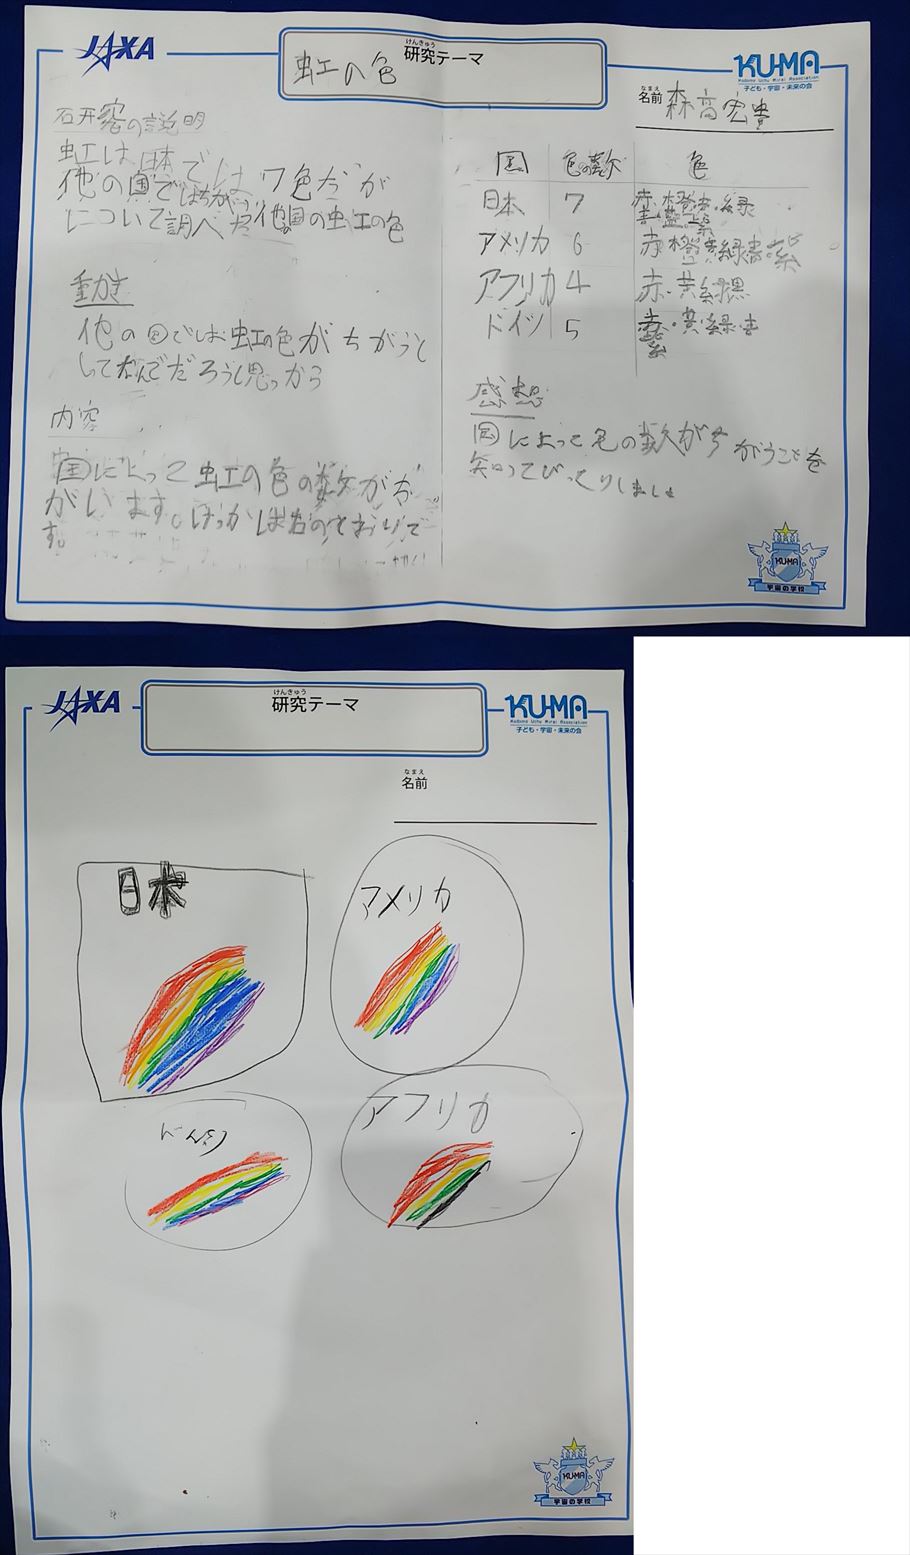 JAXA
けんきゅう
研究テーマ
虹の色
KU-MA
Kodomo Uchu Mirai Association
子ども・宇宙・未来の会
なまえ
名前 森高宏貴
研究の説明
虹は日本では7色だが
他の国ではちがう
について調べた他国の虹の色
動き
他の国でしお虹の色がちがうと
してなんでだろうし思っから
内容
国によって虹の色の数がが
がいます。けっかしまたのとおりで
す。
国 色の数 色
日本 7 赤・橙・黄・緑
青・藍・紫
アメリカ 6 赤橙黄緑青紫
アフリカ 4 赤・黄緑黒
ドイツ 5 赤・黄・緑・青
紫
感想
国によって色の数がちがうことを
知ってびっくりしました
KU-MA
宇宙の学校
JAXA
けんきゅう
研究テーマ
KU-MA
Kodomo Uchu Mirai Association
子ども・宇宙・未来の会
なまえ
名前
日本
アメリカ
アフリカ
KU-MA
宇宙の学校